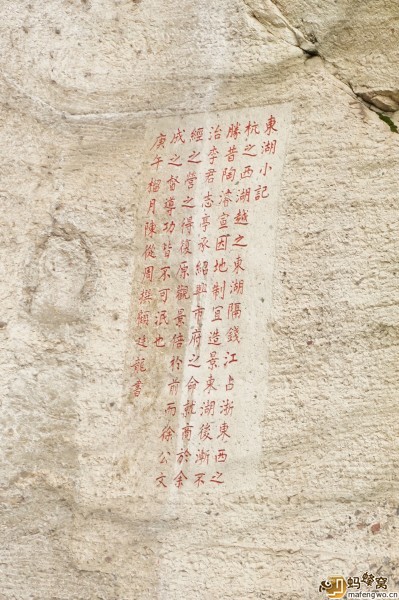 東湖小記
杭之西湖越之東湖隔錢江占浙東西之
勝昔陶濬宣因地制宜造景東湖後漸不
治李君志亭承紹興市府之命就商於余
經之營之得復原觀景倍於前而徐公文
成之督導功皆不可泯也
庚午榴月陳從周撰顧廷龍書
蚂蜂窝
mafengwo.cn